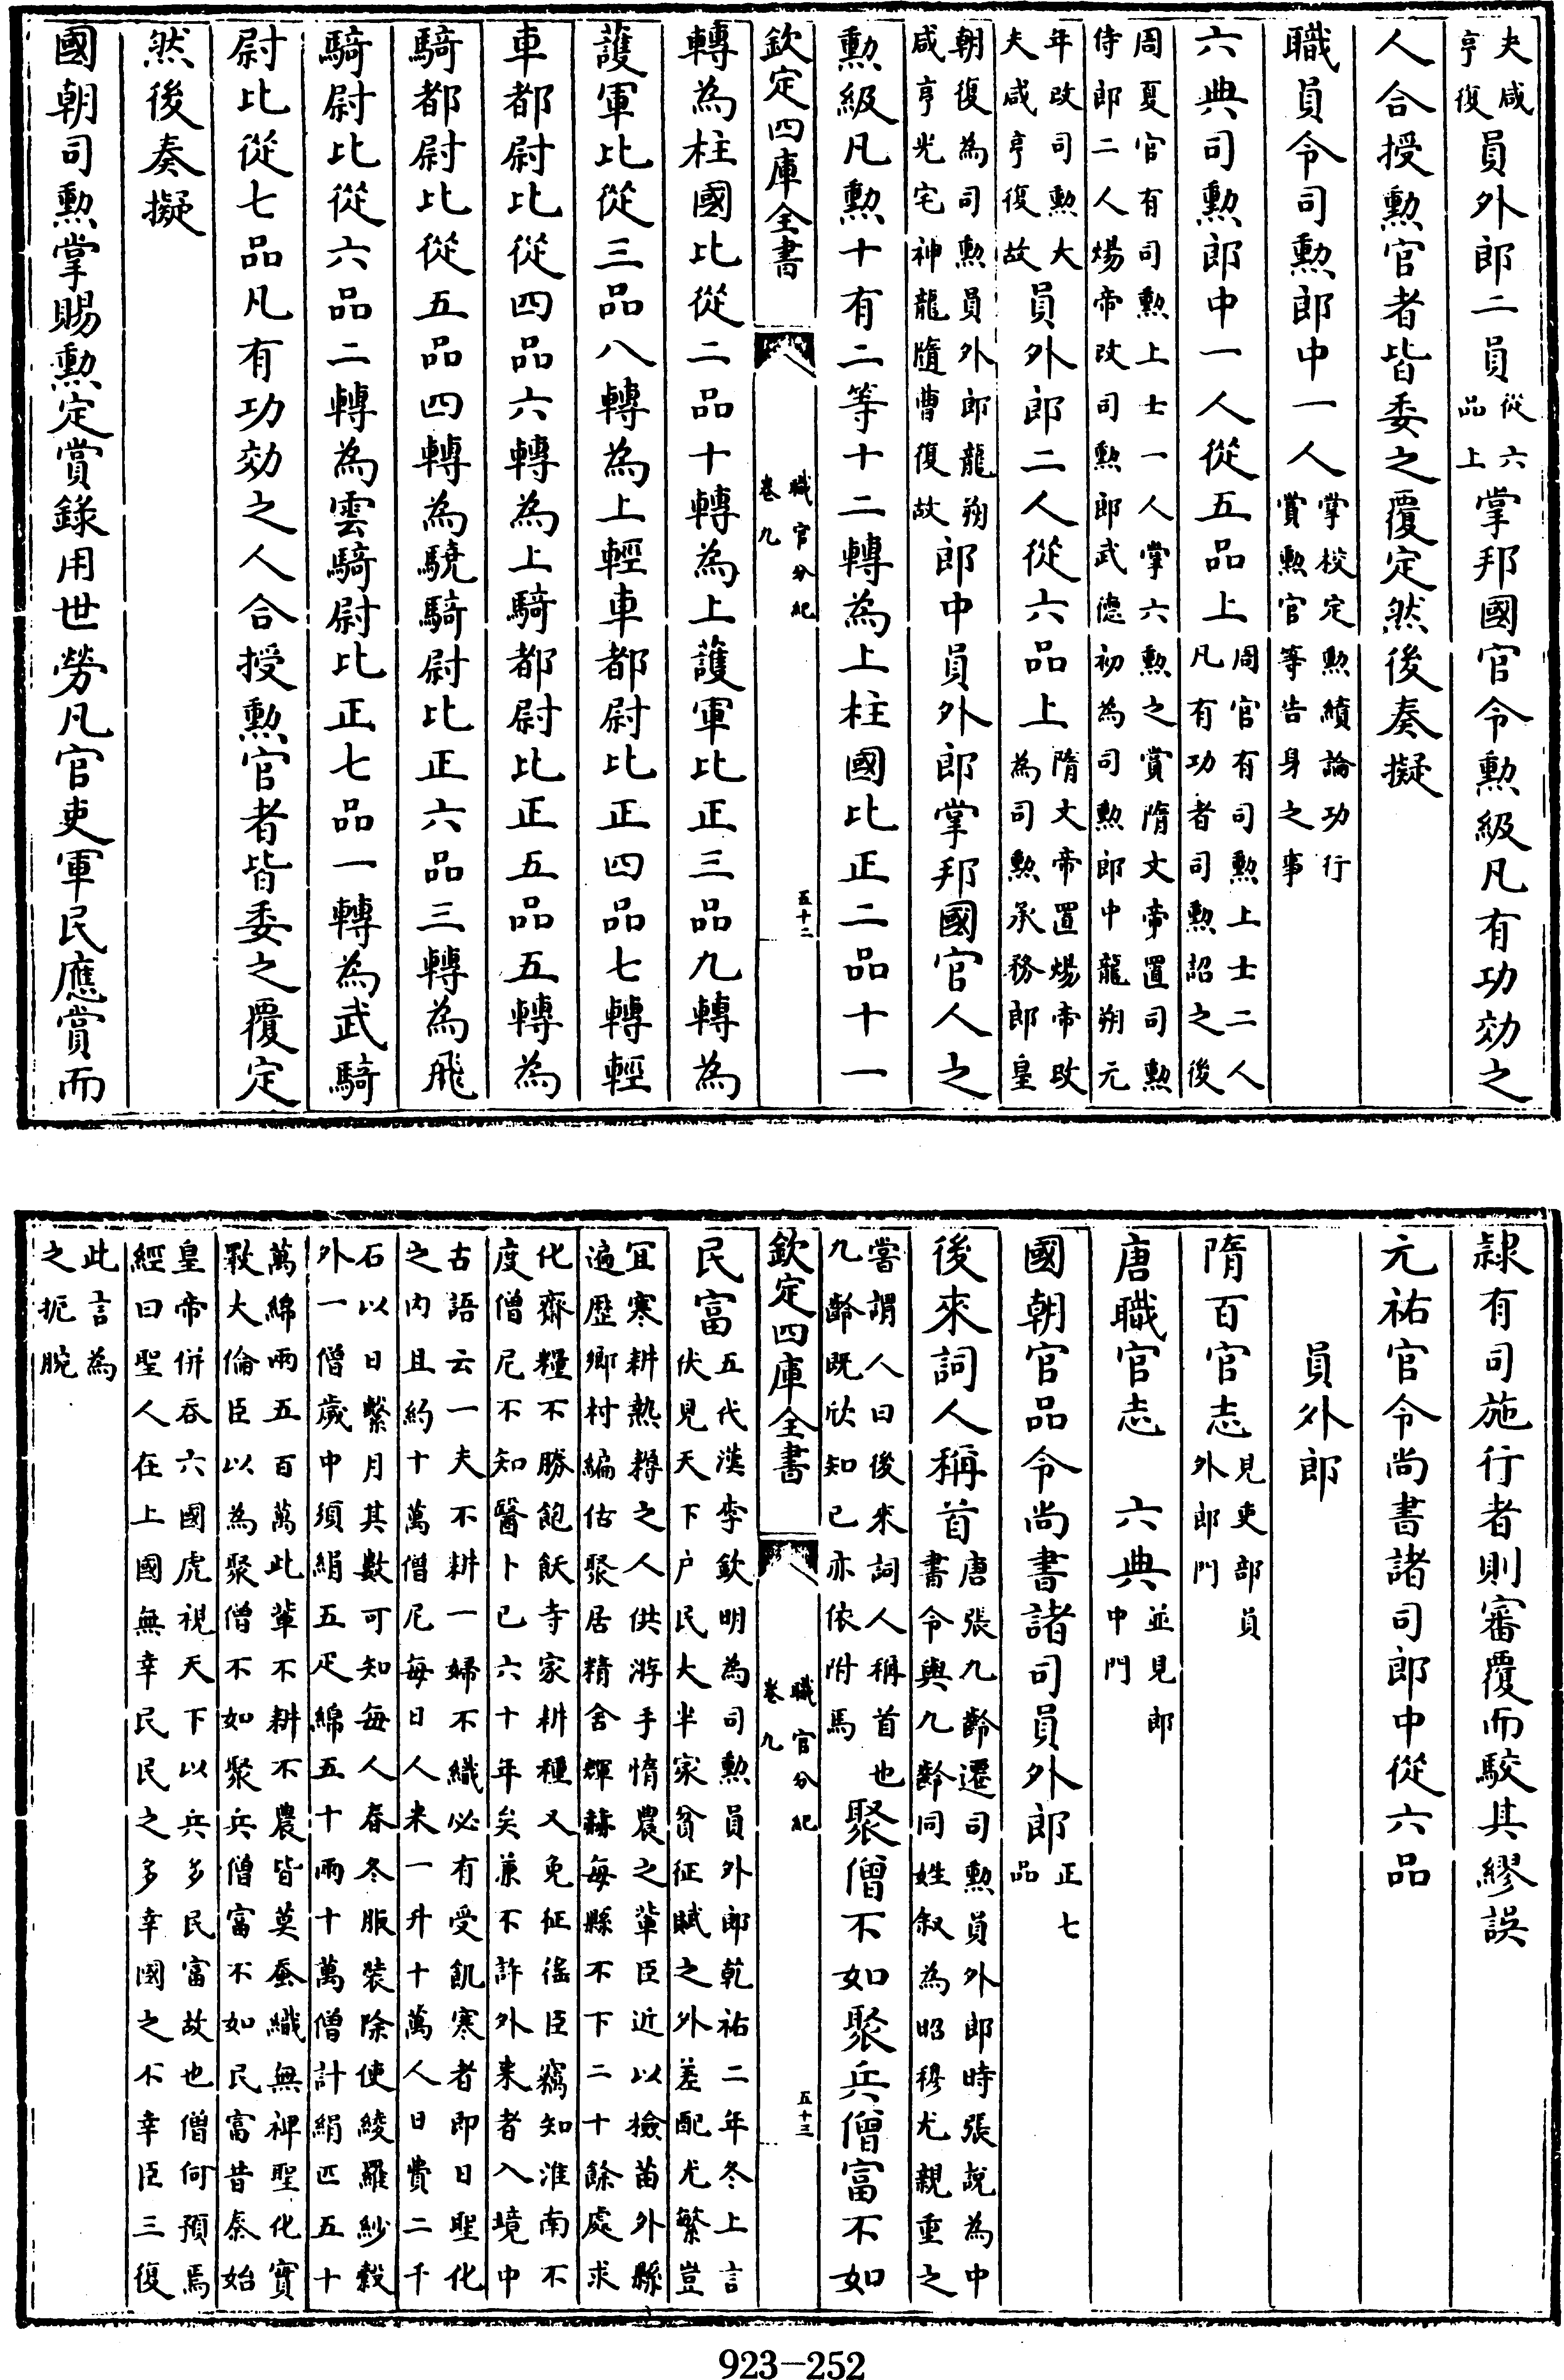 夫咸亨復員外郎二員從六品上掌邦國官令勲級凡有功効之
人合授勲官者皆委之覆定然後奏擬
職員令司勲郎中一人掌校定勲績論功行賞勲官等告身之事
六典司勲郎中一人從五品上周官有司勲上士二人凡有功者司勲詔之後
周夏官有司勲上士一人掌六勲之賞隋文帝置司勲侍郎二人煬帝改司勲郎武德初為司勲郎中龍朔元
年改司勲大夫咸亨復故員外郎二人從六品上隋文帝置煬帝改為司勲承務郎皇
朝復為司勲員外郎龍朔咸亨光宅神龍隨曹復故郎中員外郎掌邦國官人之
勲級凡勲十有二等十二轉為上柱國比正二品十一
欽定四庫全書 職官分紀卷九 五十二
轉為柱國比從二品十轉為上䕶軍比正三品九轉為
䕶軍比從三品八轉為上輕車都尉比正四品七轉輕
車都尉比從四品六轉為上騎都尉比正五品五轉為
騎都尉比從五品四轉為驍騎尉比正六品三轉為飛
騎尉比從六品二轉為雲騎尉比正七品一轉為武騎
尉比從七品凡有功効之人合授勲官者皆委之覆定
然後奏擬
國朝司勲掌賜勲定賞錄用世勞凡官吏軍民應賞而
隷有司施行者則審覆而駮其繆誤
元祐官令尚書諸司郎中從六品
員外郎
隋百官志見吏部員外郎門
唐職官志 六典並見郎中門
國朝官品令尚書諸司員外郎正七品
後來詞人稱首唐張九齡遷司勲員外郎時張說為中書令與九齡同姓叙為昭穆尤親重之
嘗謂人曰後來詞人稱首也九齡既欣知已亦依附焉聚僧不如聚兵僧富不如
欽定四庫全書 職官分紀卷九 五十三
民富五代漢李欽明為司勲員外郎乾祐二年冬上言伏見天下户民大半家貧征賦之外差配尤繁豈
宜寒耕熱耨之人供游手惰農之輩臣近以檢苗外縣遍歴鄉村編估聚居精舍輝赫每縣不下二十餘處求
化齋糧不勝飽飫寺家耕種又免征徭臣竊知淮南不度僧尼不知醫卜已六十年矣兼不許外来者入境中
古語云一夫不耕一婦不織必有受飢寒者即日聖化之内且約十萬僧尼每日人米一升十萬人日費二千
石以日繫月其數可知每人春冬服裝除使綾羅紗縠外一僧歲中須絹五疋綿五十兩十萬僧計絹匹五十
萬綿兩五百萬此輩不耕不農皆莫蚕織無禆聖化實斁大倫臣以為聚僧不如聚兵僧富不如民富昔秦始
皇帝併吞六國虎視天下以兵多民富故也僧何預焉經曰聖人在上國無幸民民之多幸國之不幸臣三復
此言為之扼腕
923—252